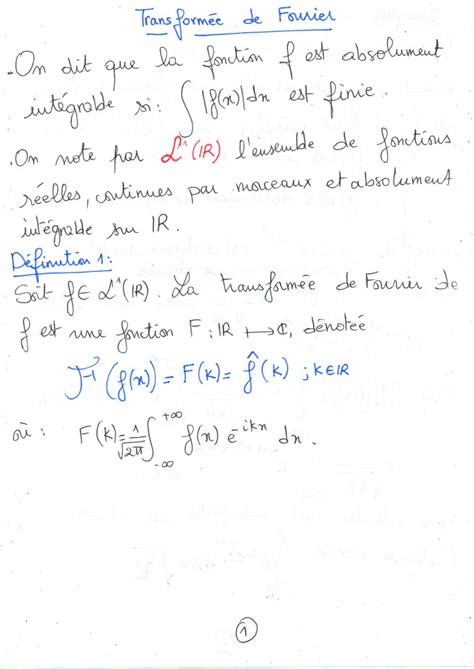 Transformée de Fourier
. On dit que la fonction f est absolument
intégrable si : ∫ |f(x)| dx est finie.
. On note par L¹(IR) l'ensemble de fonctions
réelles, continues par morceaux et absolument
intégrable sur IR.
Définition 1:
Soit f ∈ L¹(IR). La transformée de Fourier de
f est une fonction F : IR ⟼ ℂ, dénotée
F(f(x)) = F(k) = f̂(k) ; k ∈ IR
où : F(k) = 1/√2π ∫_{-∞}^{+∞} f(x) e^{-ikx} dx.
1